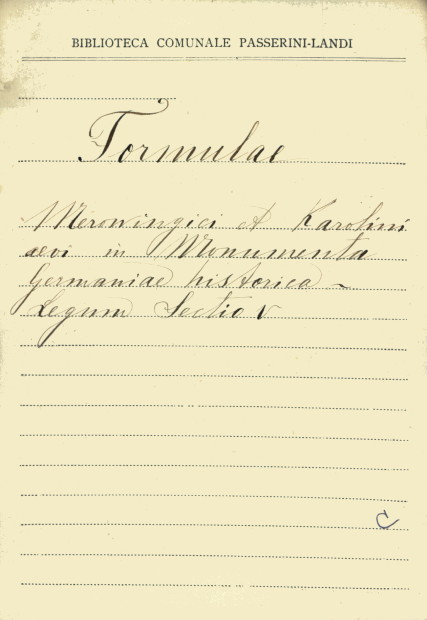 BIBLIOTECA COMUNALE PASSERINI-LANDI
Formulae
Merowingici et Karolini
aevi in Monumenta
Germaniae historica -
Legum Sectio V
C